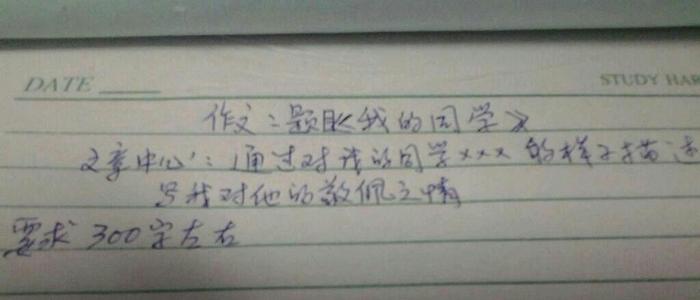 DATE
STUDY HAR
作文:题目《我的同学》
文章中心:通过对我的同学×××的样子描述
写我对他的敬佩之情
要求 300字左右